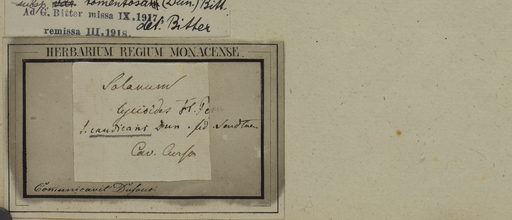 subsp. tomentosa (Dun.) Bitt.
Ad G. Bitter missa IX. 1917.
det. Bitter
remissa III. 1918.
HERBARIUM REGIUM MONACENSE.
Solanum
lycioides Fl. Per
S. candicans Dun. fid Sendtner
Cav.
Comunicavit Dufour